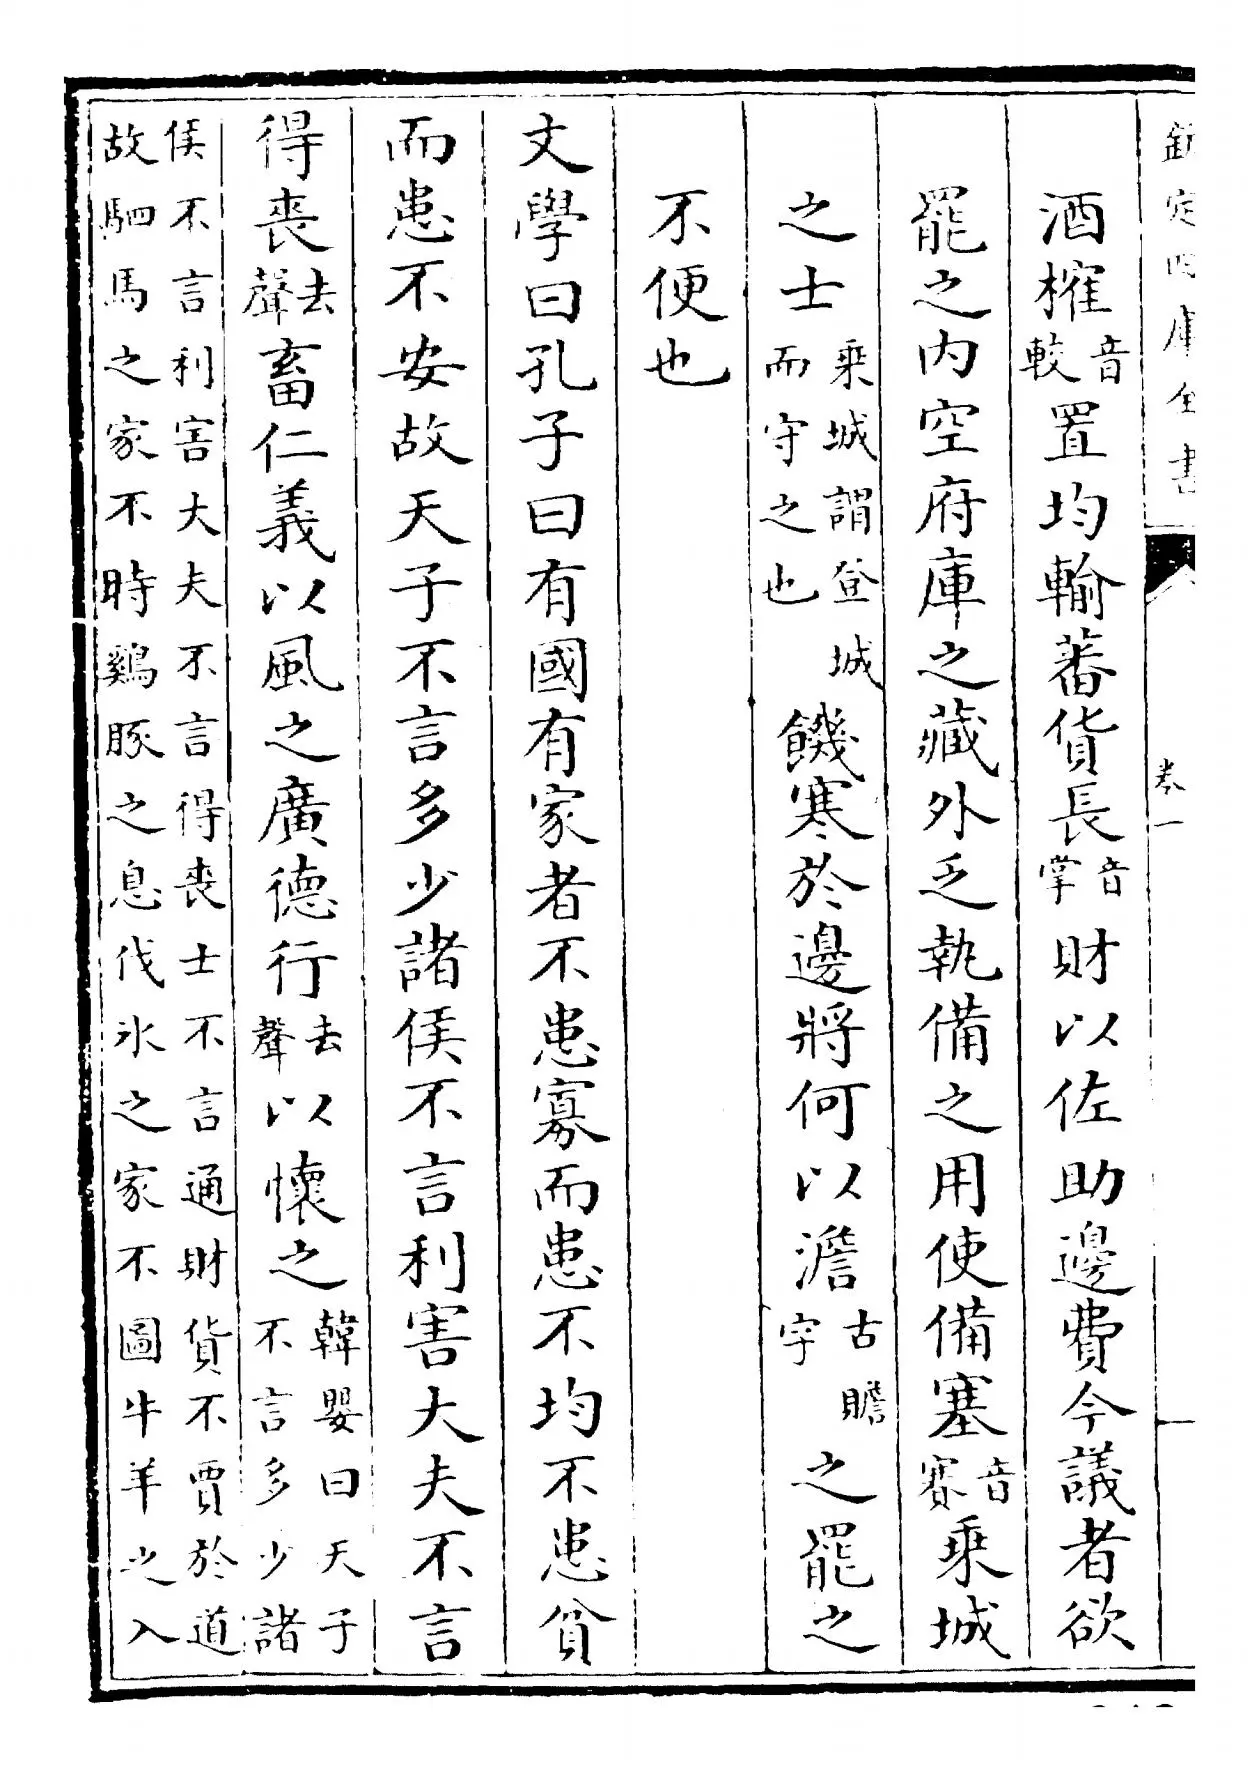 欽定四庫全書
卷一
酒榷音較置均輸蕃貨長音掌財以佐助邊費今議者欲
罷之内空府庫之藏外乏執備之用使備塞音賽乘城
之士乘城謂登城而守之也饑寒於邊將何以澹古贍字之罷之
不便也
文學曰孔子曰有國有家者不患寡而患不均不患貧
而患不安故天子不言多少諸侯不言利害大夫不言
得喪去聲畜仁義以風之廣德行去聲以懷之韓嬰曰天子不言多少諸
侯不言利害大夫不言得喪士不言通財貨不賈於道
故駟馬之家不時鷄豚之息伐氷之家不圖牛羊之入